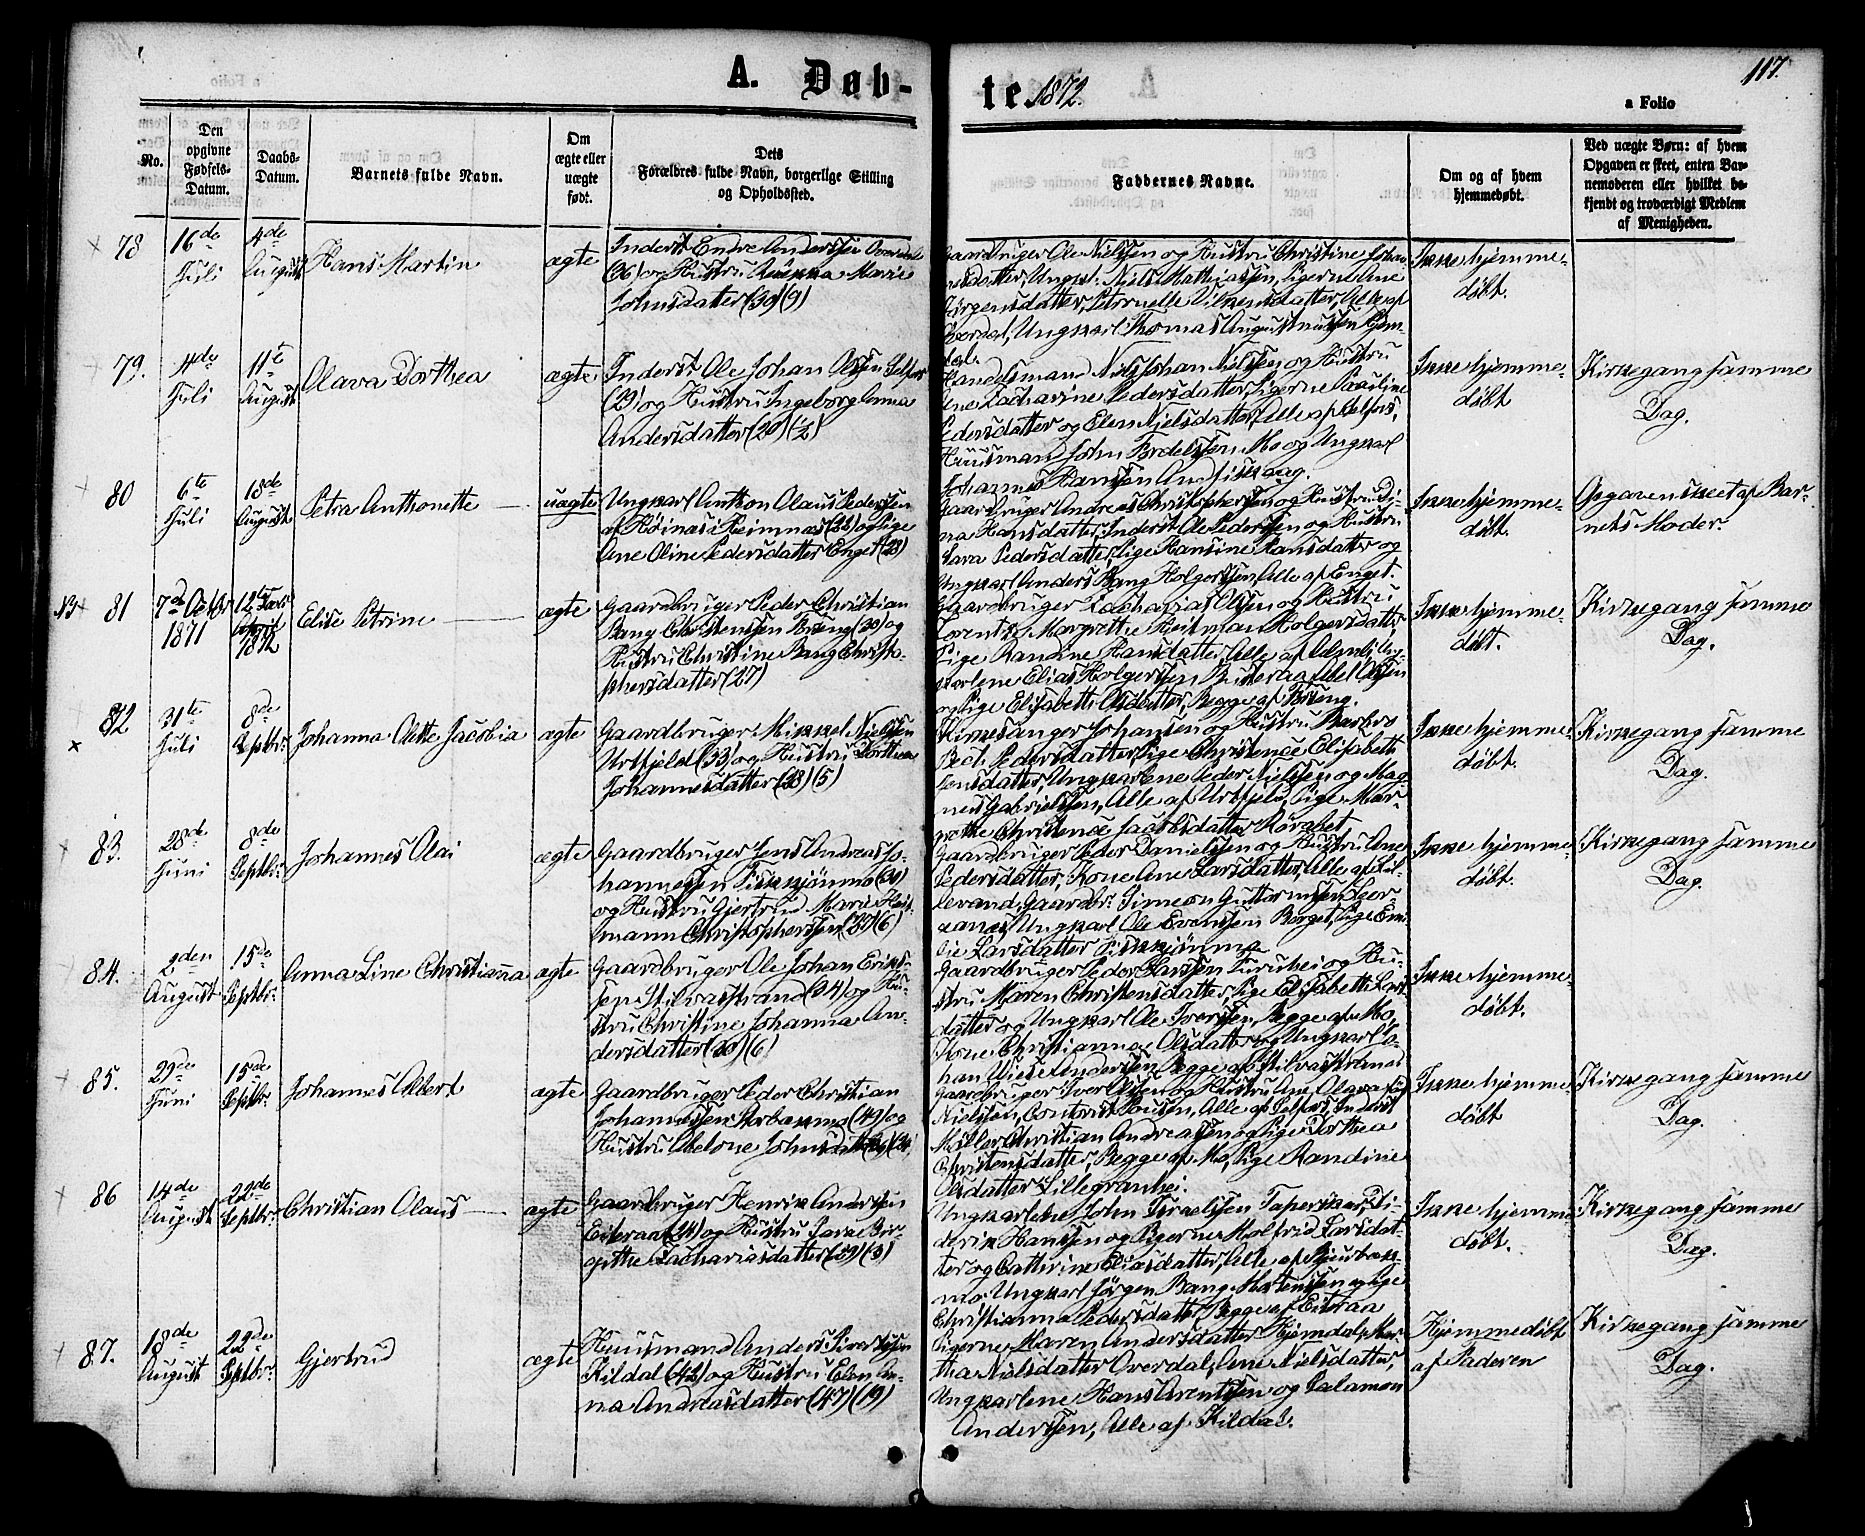 117.
A. Døb-
te 1872.
a Folio
No.
Den opgivne Fødsels-Datum.
Daabs-Datum.
Barnets fulde Navn.
Om ægte eller uægte født.
Dets Forældres fulde Navn, borgerlige Stilling og Opholdssted.
Faddernes Navne.
Om og af hvem hjemmedøbt.
Ved uægte Børn: af hvem Opgaven er skeet, enten Barnemoderen eller hvilket bekjendt og troværdigt Medlem af Menigheden.
78
16de Juli
4de August
Hans Martin
ægte
Inderst Endre Anderssen
(36) og Hustru Marie
Johnsdatter (30) (9)
Gaardbruger Ole Nielssen og Hustru Christine Johan-
nesdatter, Ungk: Niels Mathiassen, Pigerne Ane
Jørgensdatter, Petronelle Vilkensdatter, Alle af
Overdal, Ungkarl Thomas Augustinussen Hjem-
dal.
Ikke hjemme-
døbt.
79.
4de Juli
11te August
Olava Dorthea
ægte
Inderst Ole Johan Olssen Selfors
(23) og Hustru Ingeborg Anna
Andersdatter (20) (½)
Handelsmand Niels Johan Nielssen og Hustru
Ane Zacharine Pedersdatter, Pigerne Pauline
Pedersdatter og Elen Nielsdatter, Alle af Selfors,
Huusmand John Tordelssen Mo og Ungkarl
Johannes Hanssen Andfiskaag.
Ikke hjemme-
døbt
Kirkegang samme
Dag.
80
6te Juli
18de August
Petra Anthonette
uægte
Ungkarl Anthon Olaus Pederssen
af Høinæs i Hemnæs (22) og Pige
Ane Oline Pedersdatter Enget (23)
Gaardbruger Andreas Christopherssen og Hustru Di-
na Hansdatter, Inderst Ole Pederssen og Hustru
Sara Pedersdatter, Pige Hansine Hansdatter og
Ungkarl Anders Bang Holgerssen, Alle af Enget.
Ikke hjemme-
døbt.
Opgaven skeet af Bar-
nets Moder.
NB
81
7de Octbr 1871
1872
Elise Petrine
ægte
Gaardbruger Peder Christian
Bang Christenssen Brung (30) og
Hustru Christine Bang Christo-
phersdatter (27)
Gaardbruger Zacharias Olssen og Hustru
Lorentze Margrethe Heitman Holgersdatter,
Pige Randine Hansdatter, Alle af Ung-
karlene Elias Holgerssen Abel Olssen
og Pige Elisabeth Olsdatter, Begge af Brung.
Ikke hjemme-
døbt.
Kirkegang samme
Dag.
82
31te Juli
8de Septbr:
Johanna Olette Jacobia
ægte
Gaardbruger Mikkel Nielssen
Urtfjeld (33) og Hustru Dorthea
Johannesdatter (28) (5)
Kirkesanger Johansen og Hustru Barbro
Bech Pedersdatter, Pige Christence Elisabeth
Jensdatter, Ungkarlene Peder Nielssen og Mag-
nus Gabrielssen, Alle af Urtfjeld, Pige Mar-
grethe Christence Jacobsdatter
Ikke hjemme-
døbt.
Kirkegang samme
Dag.
83.
28de Juni
8de Septbr:
Johannes Olai
ægte
Gaardbruger Jens Andreas Jo-
hannessen Fiskkjønmo (30)
og Hustru Gjertrud Marie Heit-
mann Christopherssen (37) (6)
Gaardbruger Peder Danielssen og Hustru Ane
Pedersdatter, Kone Ane Larsdatter, Alle af Lil-
levand, Gaardbr: Simeon Guttormssen
Ungkarl Ole Evenssen Borget, Pige Emi-
lie Larsdatter Fiskkjønmo
Ikke hjemme-
døbt.
Kirkegang samme
Dag.
84.
2den August
15de Septbr:
Anna Line Christianna
ægte
Gaardbruger Ole Johan Eriks-
sen Stilvasstrand (34) og Hu-
stru Christine Johanna An-
dersdatter (6)
Gaardbruger Peder Larssen Furuhei og Hu-
stru Maren Christensdatter, Pige Elisabeth Lars-
datter og Ungkarl Ole Iverssen, Begge af Mo,
Kone Christianna Olsdatter og Ungkarl Jo-
han Wiese Anderssen, Begge af Stilvasstrand
Ikke hjemme-
døbt.
85.
29de Juni
15de Septbr:
Johannes Albert
ægte
Gaardbruger Peder Christian
Johannessen (49) og
Hustru Abelone Johnsdatter
Gaardbruger Iver Olssen og Hustru Ane Olava
Nielssen, Contorist Poulsen, Alle af Selfors, Inderst
Møller Christian Andreassen og Pige Dorthea
Christensdatter, Begge af Mo, Pige Randine
Olsdatter Lillegranhei.
Ikke hjemme-
døbt
Kirkegang samme
Dag.
86
14de August
22de Septbr:
Christian Olaus
ægte
Gaardbruger Henrik Anderssen
Eiteraa (24) og Hustru Bir-
gitthe Zachariasdatter (29) (3)
Ungkarlene John Israelssen Tapeskar, Di-
derik Hanssen og Pigerne Malfrid Larsdat-
ter og Cathrine Eliasdatter, Alle af
mo, Ungkarl Jørgen Bang Mortenssen og Pige
Christianna Pedersdatter, Begge af Eiteraa
Ikke hjemme-
døbt.
Kirkegang samme
Dag.
87.
18de August
22de Septbr:
Gjertrud
ægte
Huusmand Anders Siverssen
Kildal (42) og Hustru Elen An-
na Andreasdatter (47) (19)
Pigerne Maren Andersdatter Hjemdal, Mar-
tha Nielsdatter Overdal, Ane Nielsdatter,
Ungkarlene Hans Arentssen og Salamon
Anderssen, Alle af Kildal.
Hjemmedøbt
af Faderen
Kirkegang samme
Dag.